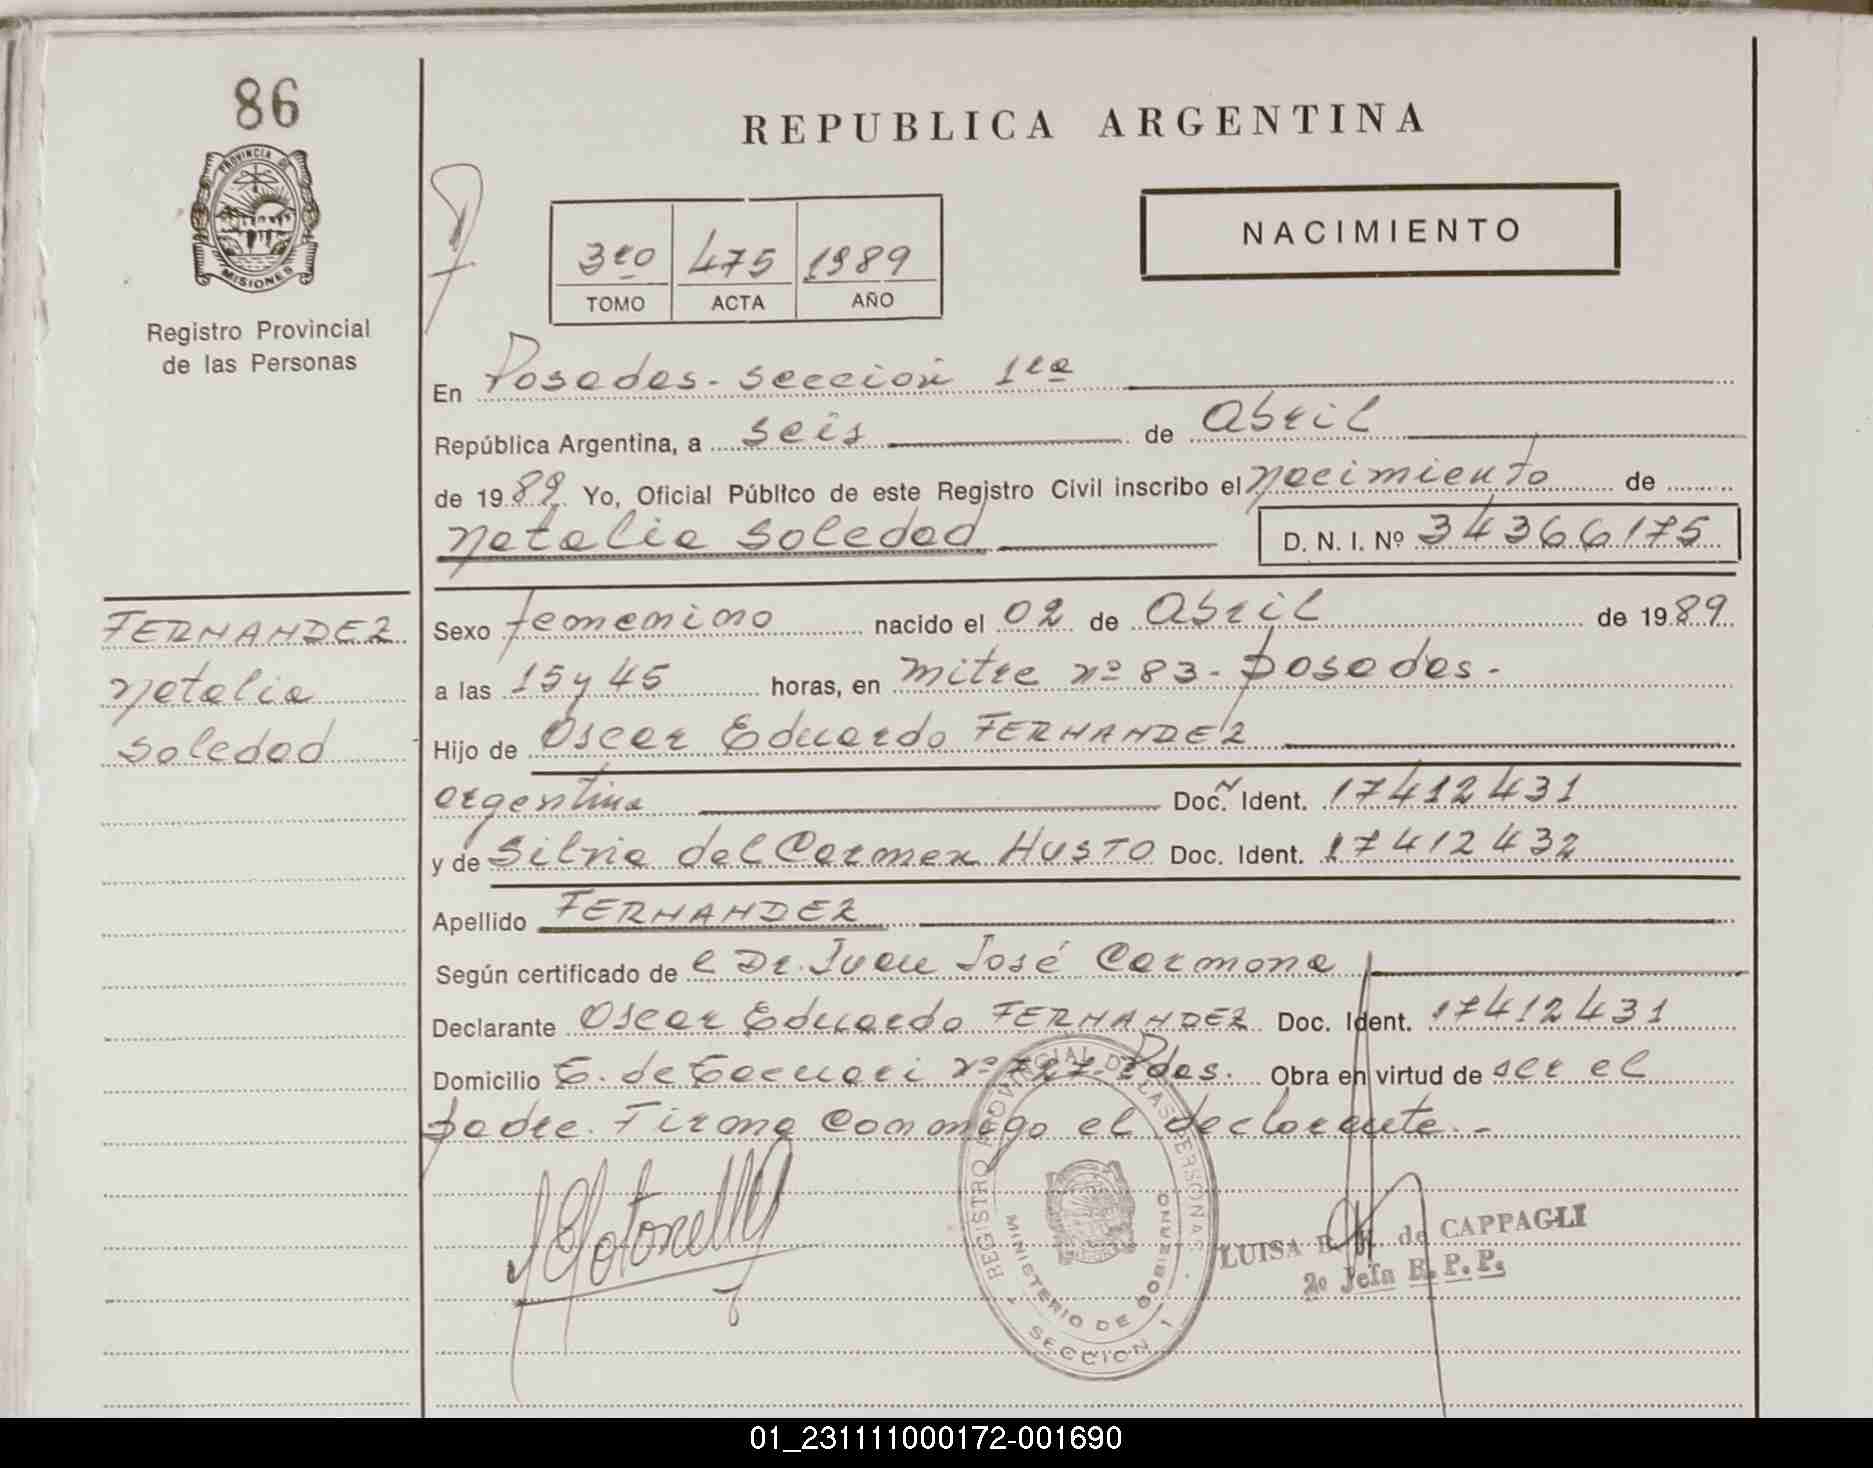 86
REPUBLICA ARGENTINA
PROVINCIA DE
MISIONES
Registro Provincial
de las Personas
NACIMIENTO
3ro 475 1989
TOMO ACTA AÑO
En Posadas - sección 1ra
República Argentina, a seis de Abril
de 1989 Yo, Oficial Público de este Registro Civil inscribo el nacimiento de
Natalia Soledad D. N. I. Nº 34366175
FERNANDEZ
Natalia
Soledad
Sexo femenino nacido el 02 de Abril de 1989
a las 15 y 45 horas, en Mitre nº 83 - Posadas.
Hijo de Oscar Eduardo FERNANDEZ
argentina Doc. Ident. 17412431
y de Silvia del Carmen HUSTO Doc. Ident. 17412432
Apellido FERNANDEZ
Según certificado de e Dr. Juan José Carmona
Declarante Oscar Eduardo FERNANDEZ Doc. Ident. 17412431
Domicilio G. de nº Pdas. Obra en virtud de ser el
padre. Firma conmigo el declarante.-
REGISTRO PROVINCIAL DE LAS PERSONAS
MINISTERIO DE GOBIERNO
SECCION 1
LUISA de CAPPAGLI
2º Jefa R. P. P.
01_231111000172-001690